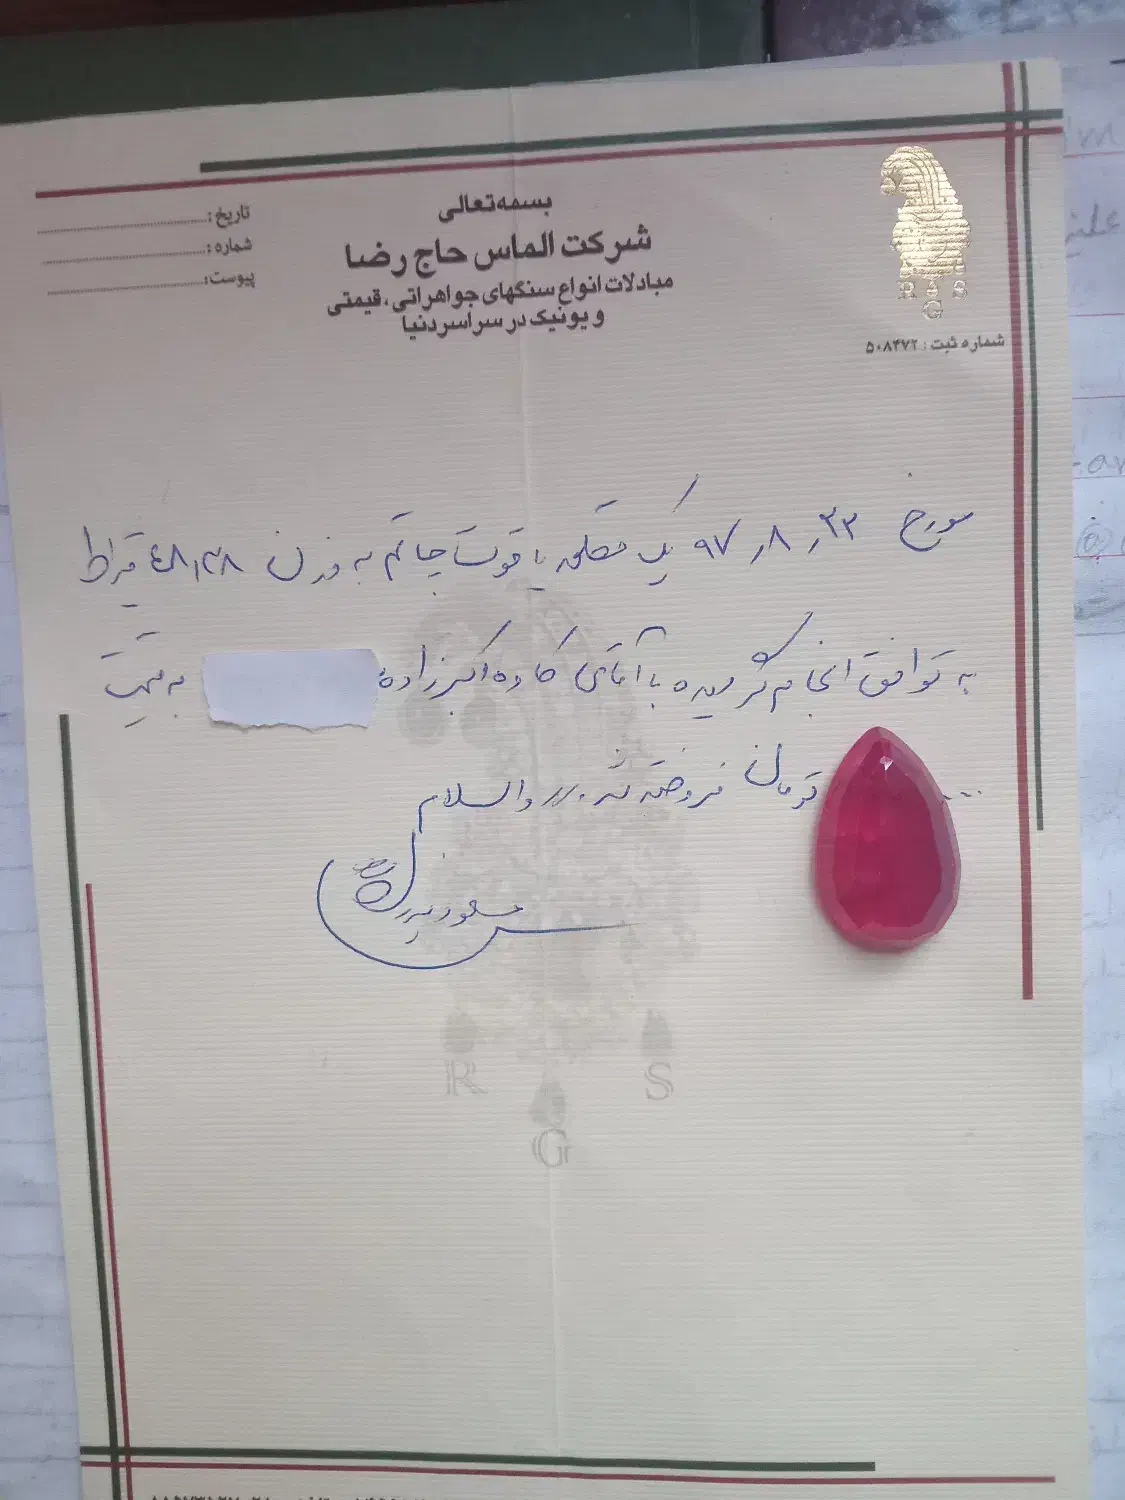 بسمه‌تعالی
شرکت الماس حاج رضا
مبادلات انواع سنگهای جواهراتی، قیمتی
و یونیک در سراسر دنیا
تاریخ:
شماره:
پیوست:
R G S
شماره ثبت: ۵۰۸۴۷۲
مورخ ۹۷٫۸٫۲۳ یک قطعه یاقوت جاتم به وزن ۴۸٫۲۸ قیراط
به توافق انجام گردیده با آقای کاوه اکبرزاده به قیمت
... تومان فروخته شد. والسلام
مسعود
R G S